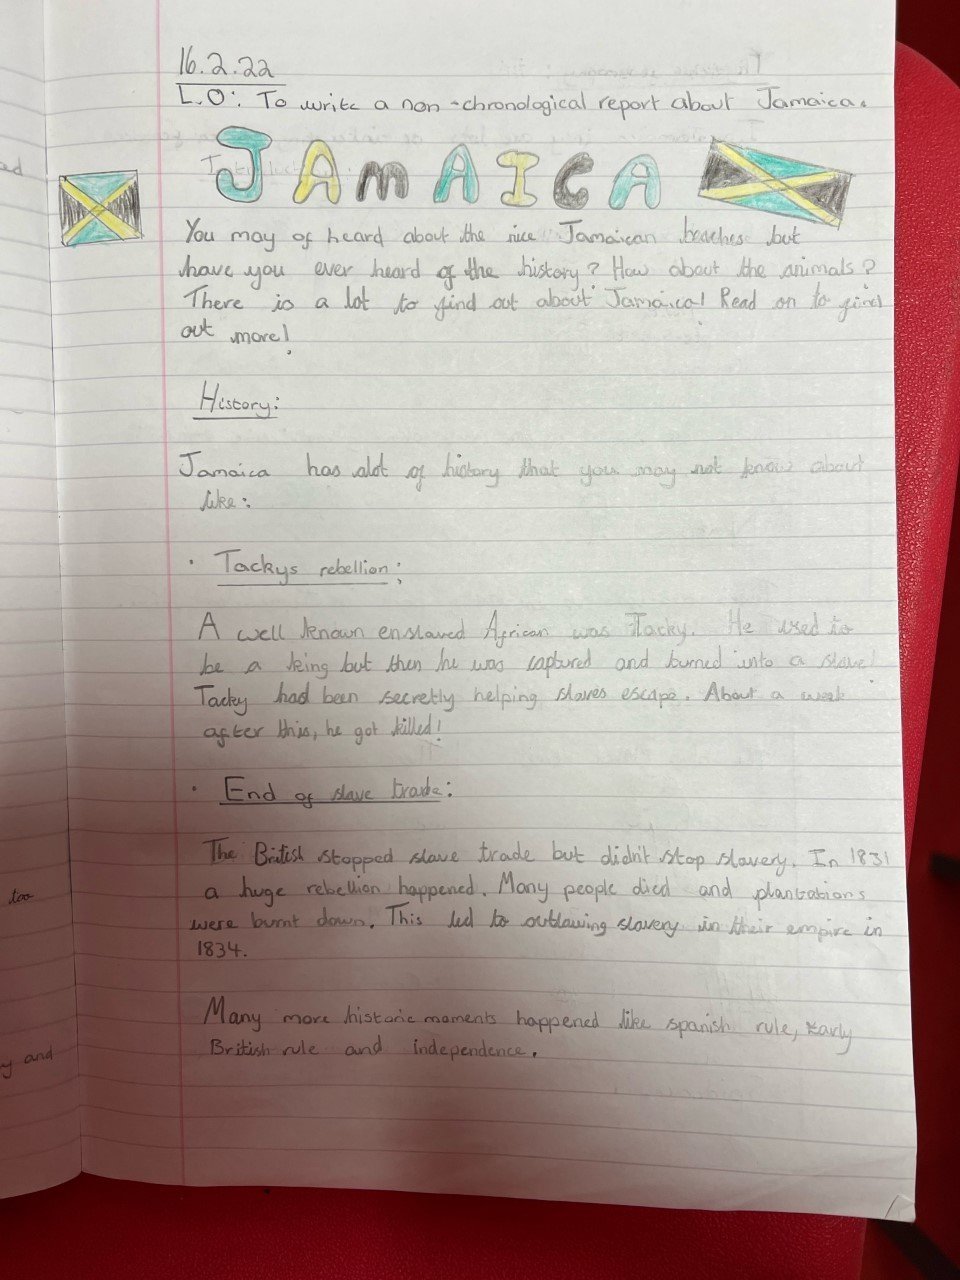 16.2.22
L.O: To write a non-chronological report about Jamaica.
JAMAICA
You may of heard about the nice Jamaican beaches but
have you ever heard of the history? How about the animals?
There is a lot to find out about Jamaica! Read on to find
out more!
History:
Jamaica has alot of history that you may not know about
like:
• Tackys rebellion:
A well known enslaved African was Tacky. He used to
be a king but then he was captured and turned into a slave!
Tacky had been secretly helping slaves escape. About a week
after this, he got killed!
• End of slave trade:
The British stopped slave trade but didn't stop slavery. In 1831
a huge rebellion happened. Many people died and plantations
were burnt down. This led to outlawing slavery in their empire in
1834.
Many more historic moments happened like spanish rule, Early
British rule and independence.
too
y and